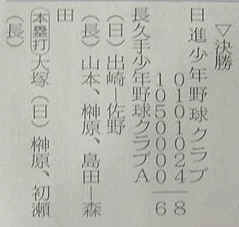 ▽決勝
日進少年野球クラブ
0101024|8
1050000|6
長久手少年野球クラブA
(日)出崎、佐野
(長)山本、榊原、島田―森
田
(本塁打)大塚(日)榊原、初瀬
(長)